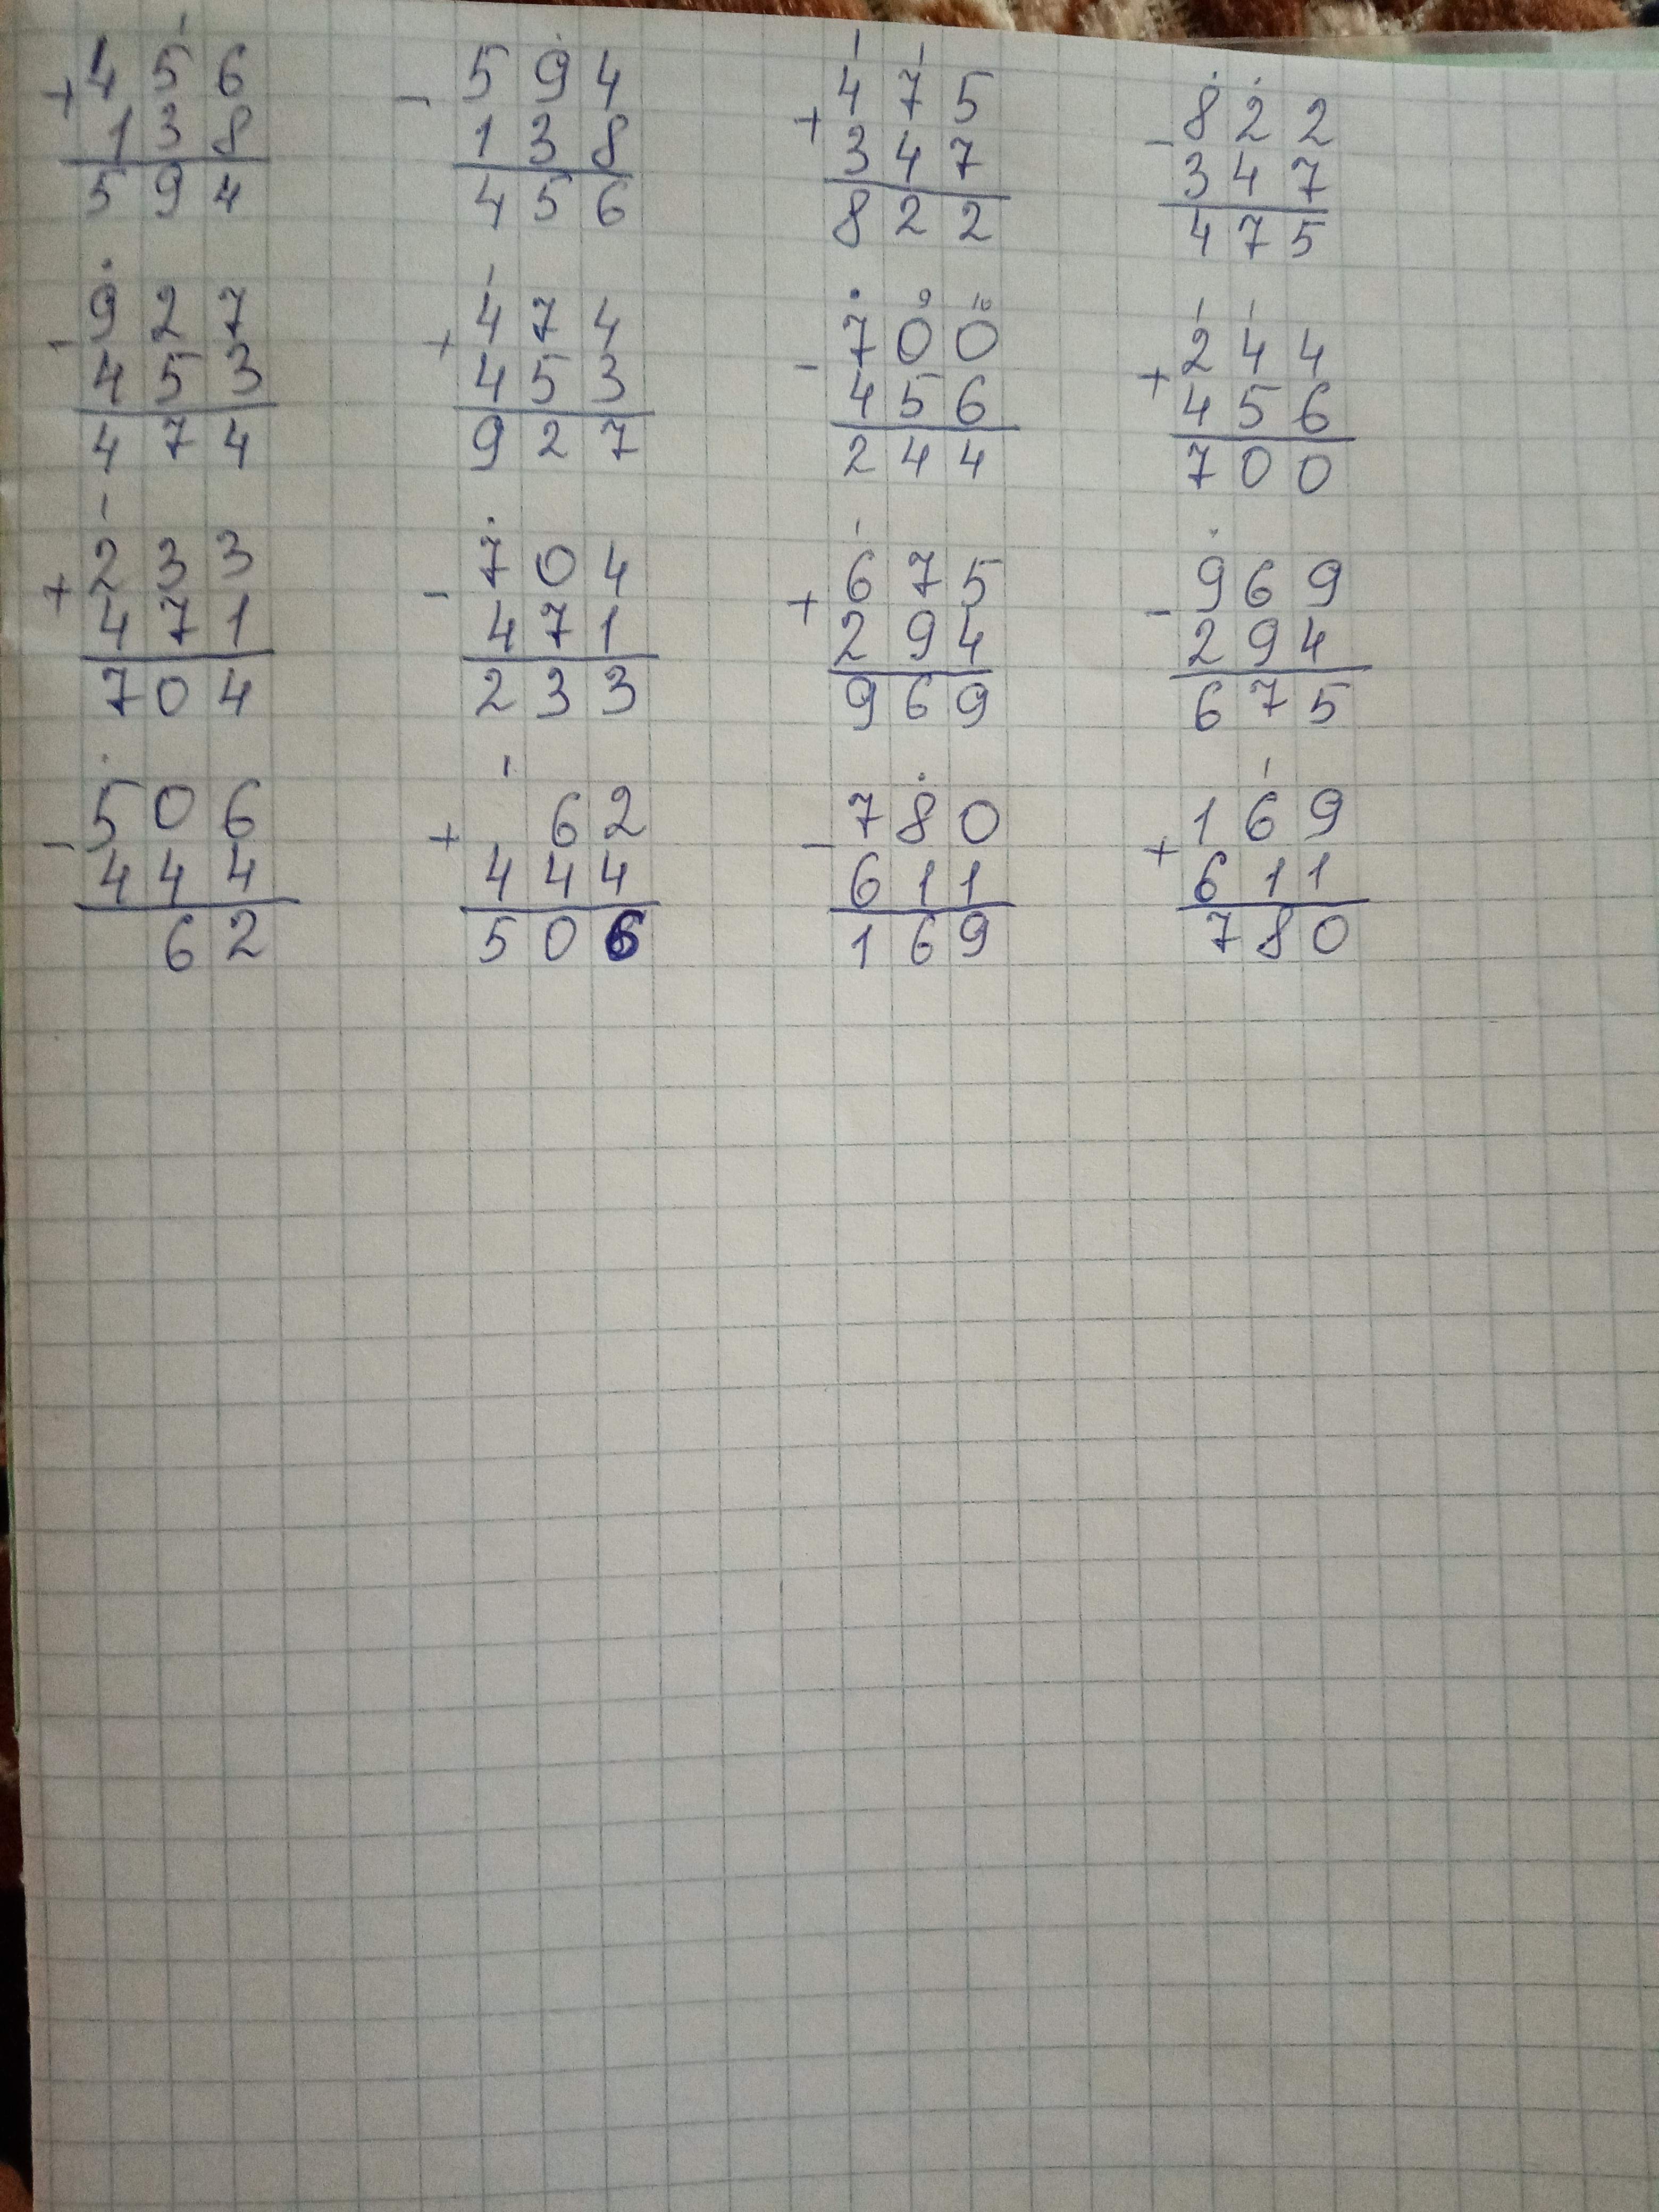 1
+ 456 - 594 + 475 - 822
138 138 347 347
594 456 822 475
- 927 + 474 - 700 + 244
453 453 456 456
474 927 244 700
+ 233 - 704 + 675 - 969
471 471 294 294
704 233 969 675
- 506 + 62 - 780 + 169
444 444 611 611
62 506 169 780